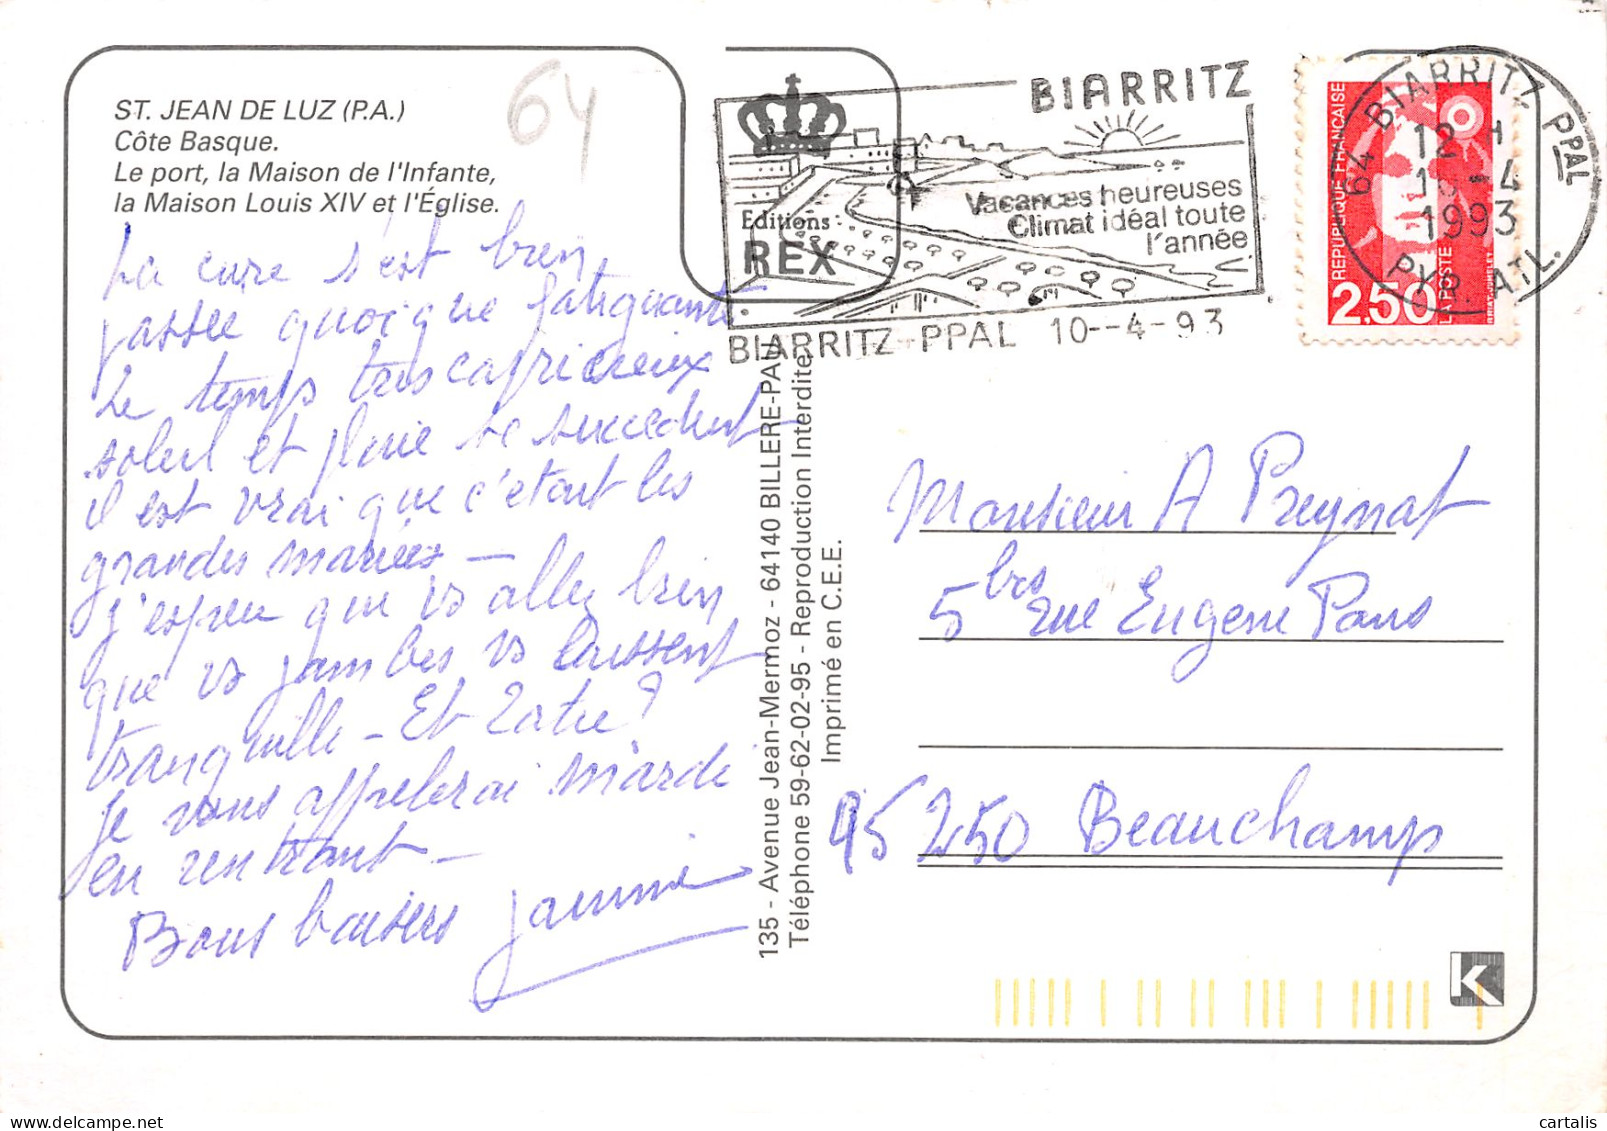 ST. JEAN DE LUZ (P.A.)
Côte Basque.
Le port, la Maison de l'Infante,
la Maison Louis XIV et l'Église.
64
La cure s'est bien
passée quoique fatiguante
Le temps très capricieux
soleil et pluie se succèdent
il est vrai que c'etait les
grandes marées —
j'espere que vs allez bien
que vs jambes vs laissent
tranquille - Et
Je vous appelerai mardi
en rentrant —
Bons baisers Jannine
Editions:
REX
135 - Avenue Jean-Mermoz - 64140 BILLERE-PAU
Téléphone 59-62-02-95 - Reproduction Interdite
Imprimé en C.E.E.
BIARRITZ
Vacances heureuses
Climat idéal toute
l'année
BIARRITZ-PPAL 10--4-93
64 BIARRITZ PPAL
12 H
-4
1993
PYR. ATL.
REPUBLIQUE FRANÇAISE
2,50
LA POSTE
Monsieur A Preynat
5 bis rue Eugene Pons
95 250 Beauchamp
K
cartalis